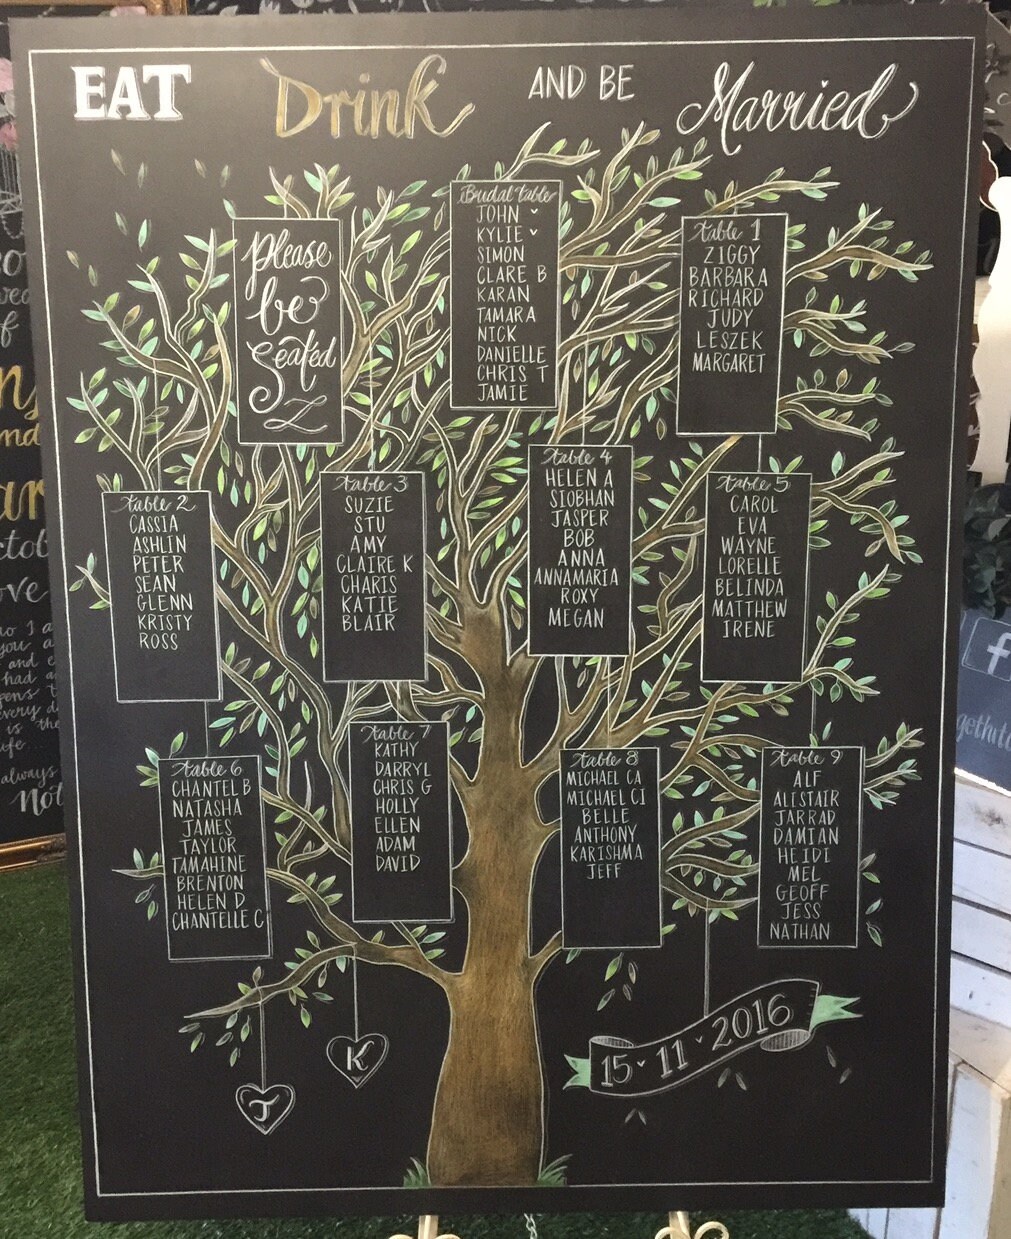 EAT Drink AND BE Married
please
be
Seated
Bridal table
JOHN
KYLIE
SIMON
CLARE B
KARAN
TAMARA
NICK
DANIELLE
CHRIS T
JAMIE
table 1
ZIGGY
BARBARA
RICHARD
JUDY
LESZEK
MARGARET
table 2
CASSIA
ASHLIN
PETER
SEAN
GLENN
KRISTY
ROSS
table 3
SUZIE
STU
AMY
CLAIRE K
CHARIS
KATIE
BLAIR
table 4
HELEN A
SIOBHAN
JASPER
BOB
ANNA
ANNAMARIA
ROXY
MEGAN
table 5
CAROL
EVA
WAYNE
LORELLE
BELINDA
MATTHEW
IRENE
table 6
CHANTEL B
NATASHA
JAMES
TAYLOR
TAMAHINE
BRENTON
HELEN D
CHANTELLE C
table 7
KATHY
DARRYL
CHRIS G
HOLLY
ELLEN
ADAM
DAVID
table 8
MICHAEL CA
MICHAEL CI
BELLE
ANTHONY
KARISHMA
JEFF
table 9
ALF
ALESTAIR
JARRAD
DAMIAN
HEIDI
MEL
GEOFF
JESS
NATHAN
J
K
15 11 2016
always
f